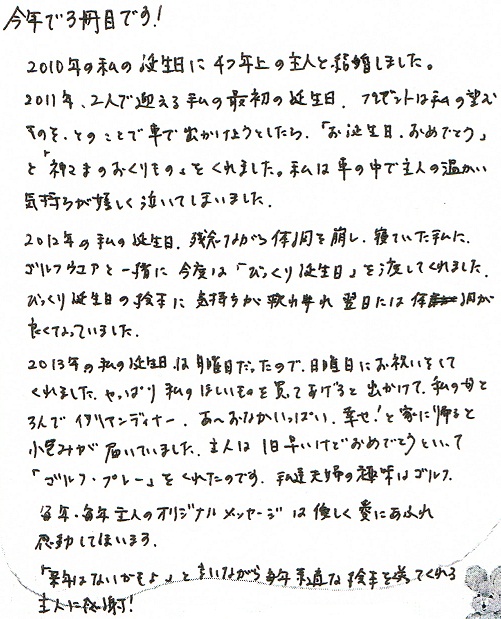 今年で3冊目です!
2010年の私の誕生日に4つ年上の主人と結婚しました。
2011年、2人で迎える私の最初の誕生日、プレゼントは私の望む
ものを、とのことで車で出かけようとしたら、「お誕生日、おめでとう」
と「神さまのおくりもの」をくれました。私は車の中で主人の温かい
気持ちが嬉しく泣いてしまいました。
2012年の私の誕生日、残念ながら体調を崩し、寝ていた私に、
ゴルフウエアと一緒に今度は「びっくり誕生日」を渡してくれました。
びっくり誕生日の絵本に気持ちが 翌日には体調が
良くなっていました。
2013年の私の誕生日は月曜日だったので、日曜日にお祝いをして
くれました。やっぱり私のほしいものを買ってあげると出かけて、私の母と
3人でイタリアンディナー。あ〜おなかいっぱい、幸せ!と家に帰ると
小包みが届いていました。主人は1日早いけどおめでとうといって
「ゴルフ・プレー」をくれたのです。私達夫婦の趣味はゴルフ。
毎年・毎年主人のオリジナルメッセージは優しく愛にあふれ
感動してしまいます。
「来年はないかもよ」と言いながら毎年素適な絵本を送ってくれる
主人に感謝!